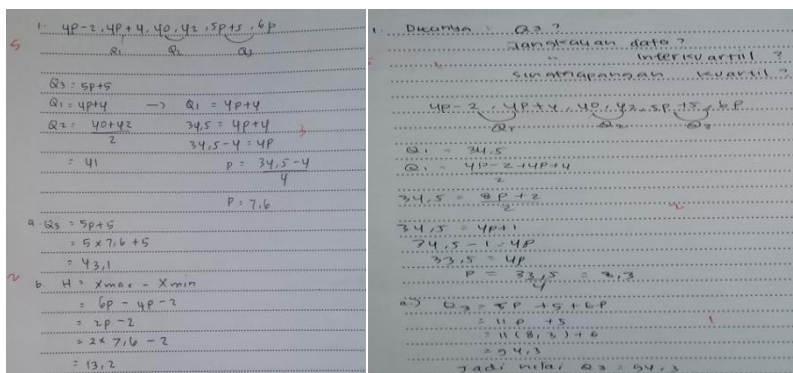 1. 4p-2, 4p+4, 40, 42, 5p+5, 6p
5
Q1 Q2 Q3
Q3 = 5p+5
Q1 = 4p+4 → Q1 = 4p+4
Q2 = 40+42 34,5 = 4p+4
2 34,5-4 = 4p 3
= 41 p = 34,5-4
4
p = 7,6
a. Q3 = 5p+5
= 5 x 7,6 + 5
= 43,1
2
b. H = Xmax - Xmin
= 6p - 4p - 2
= 2p - 2
= 2 x 7,6 - 2
= 13,2
1. Ditanya : Q3 ?
Jangkauan data ?
" interkuartil ?
kuartil ?
4p-2, 4p+4, 40, 42, 5p+5, 6p
Q1 Q2 Q3
Q1 = 34,5
Q1 = 4p-2+4p+4
2
34,5 = 8p+2
2
34,5 = 4p+1
34,5-1 = 4p
33,5 = 4p
p = 33,5 = 8,3
4
a.) Q3 = 5p +5+6p
= 11p +5 1
= 11(8,3)+6
= 94,3
Jadi nilai Q3 = 94,3